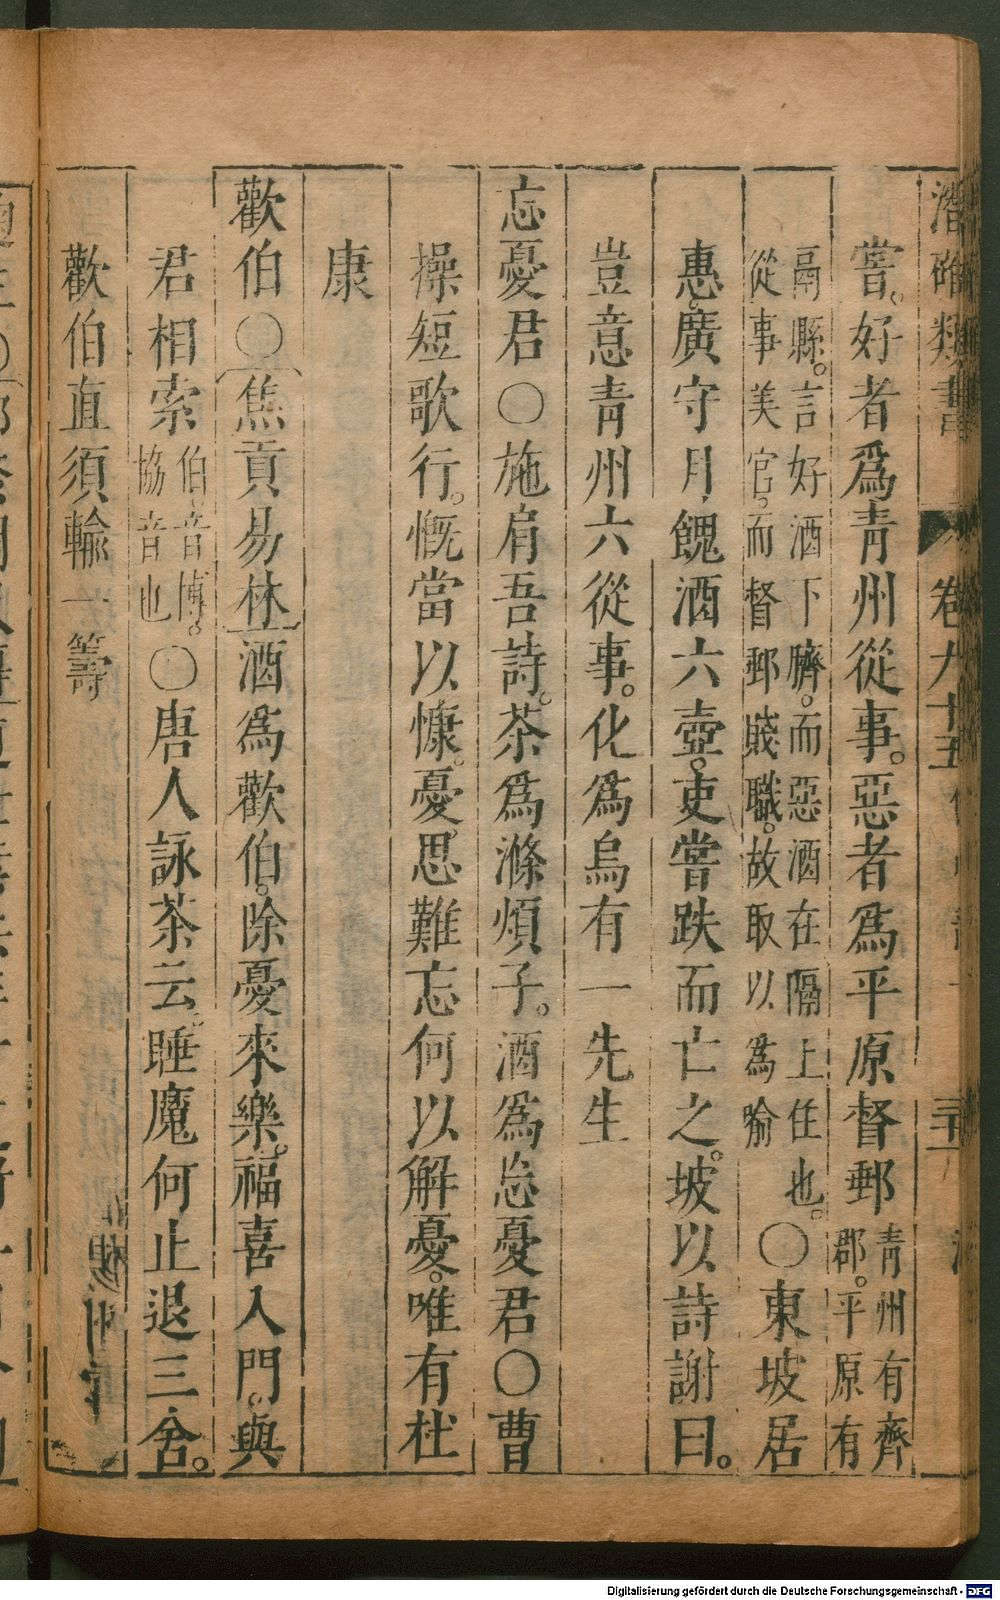 潛確類書 卷九十五
嘗。好者爲靑州從事。惡者爲平原督郵 靑州有齊郡。平原有
鬲縣。言好酒下臍。而惡酒在隔上住也。從事美官。而督郵賤職。故取以爲喻 ○東坡居
惠。廣守月餽酒六壺。吏嘗跌而亡之。坡以詩謝曰。
豈意靑州六從事。化爲烏有一先生
忘憂君○施肩吾詩。茶爲滌煩子。酒爲忘憂君○曹
操短歌行。慨當以慷。憂思難忘何以解憂。唯有杜
康
歡伯○焦貢易林酒爲歡伯。除憂來樂。福喜入門。與
君相索 伯音博。協音也 ○唐人詠茶云。睡魔何止退三舍。
歡伯直須輸一籌
Digitalisierung gefördert durch die Deutsche Forschungsgemeinschaft - DFG